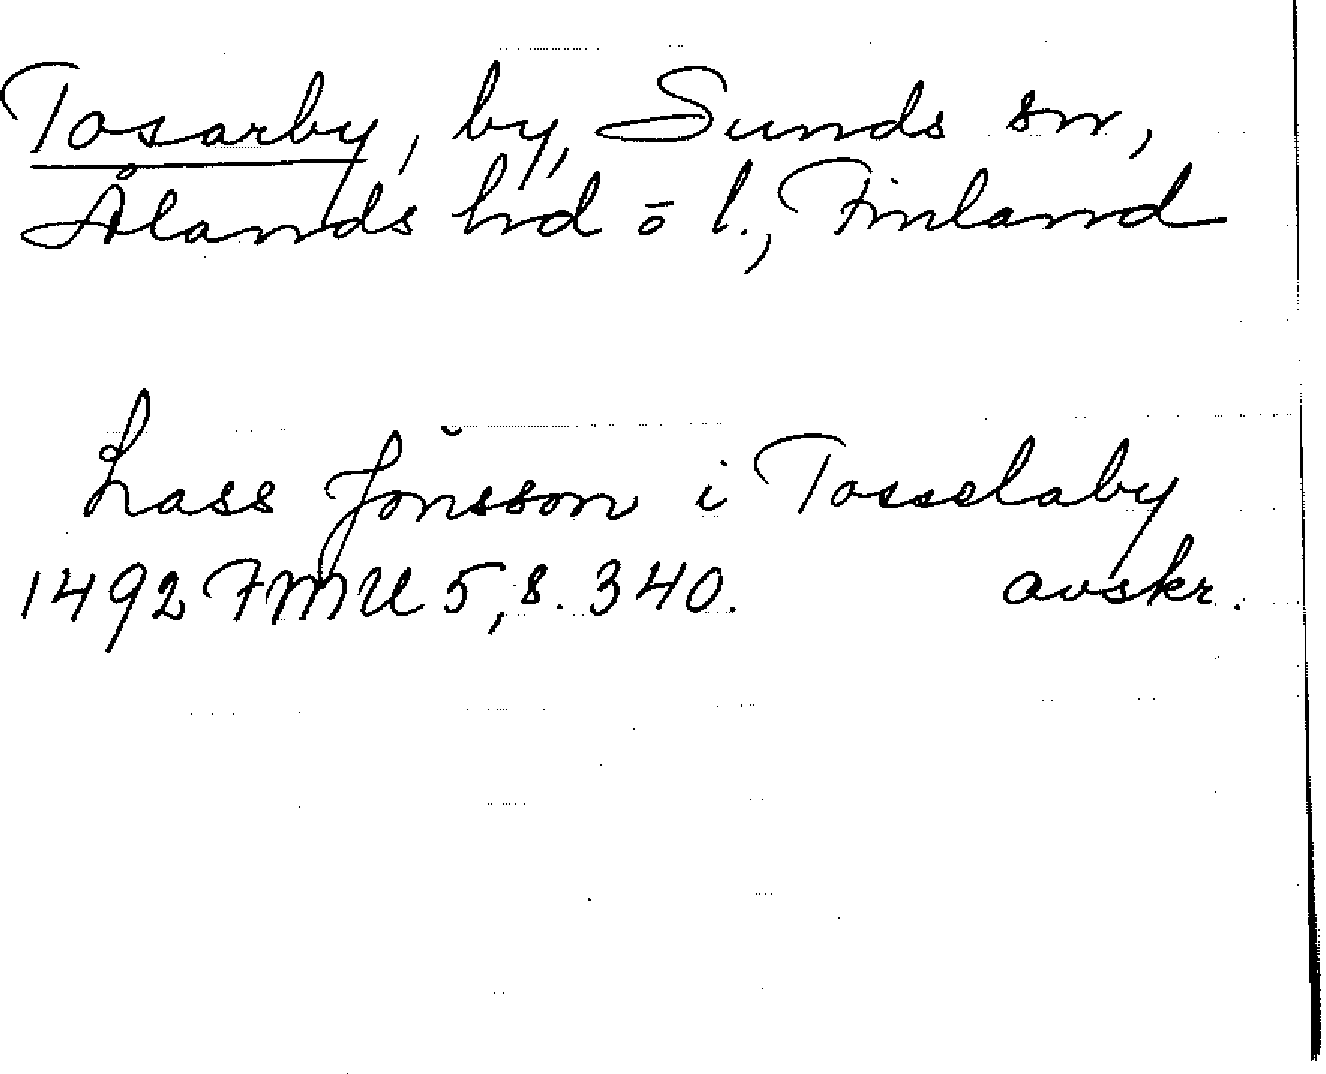 Tosarby, by, Sunds sn,
Ålands hd o l., Finland
Lass Jönsson i Tosselaby
1492 FMU 5, s. 340. avskr.